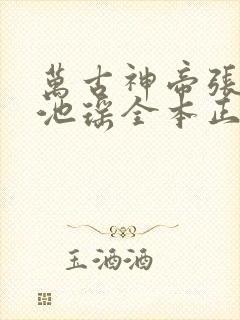 萬古神帝張
池瑤全本正
玉酒酒